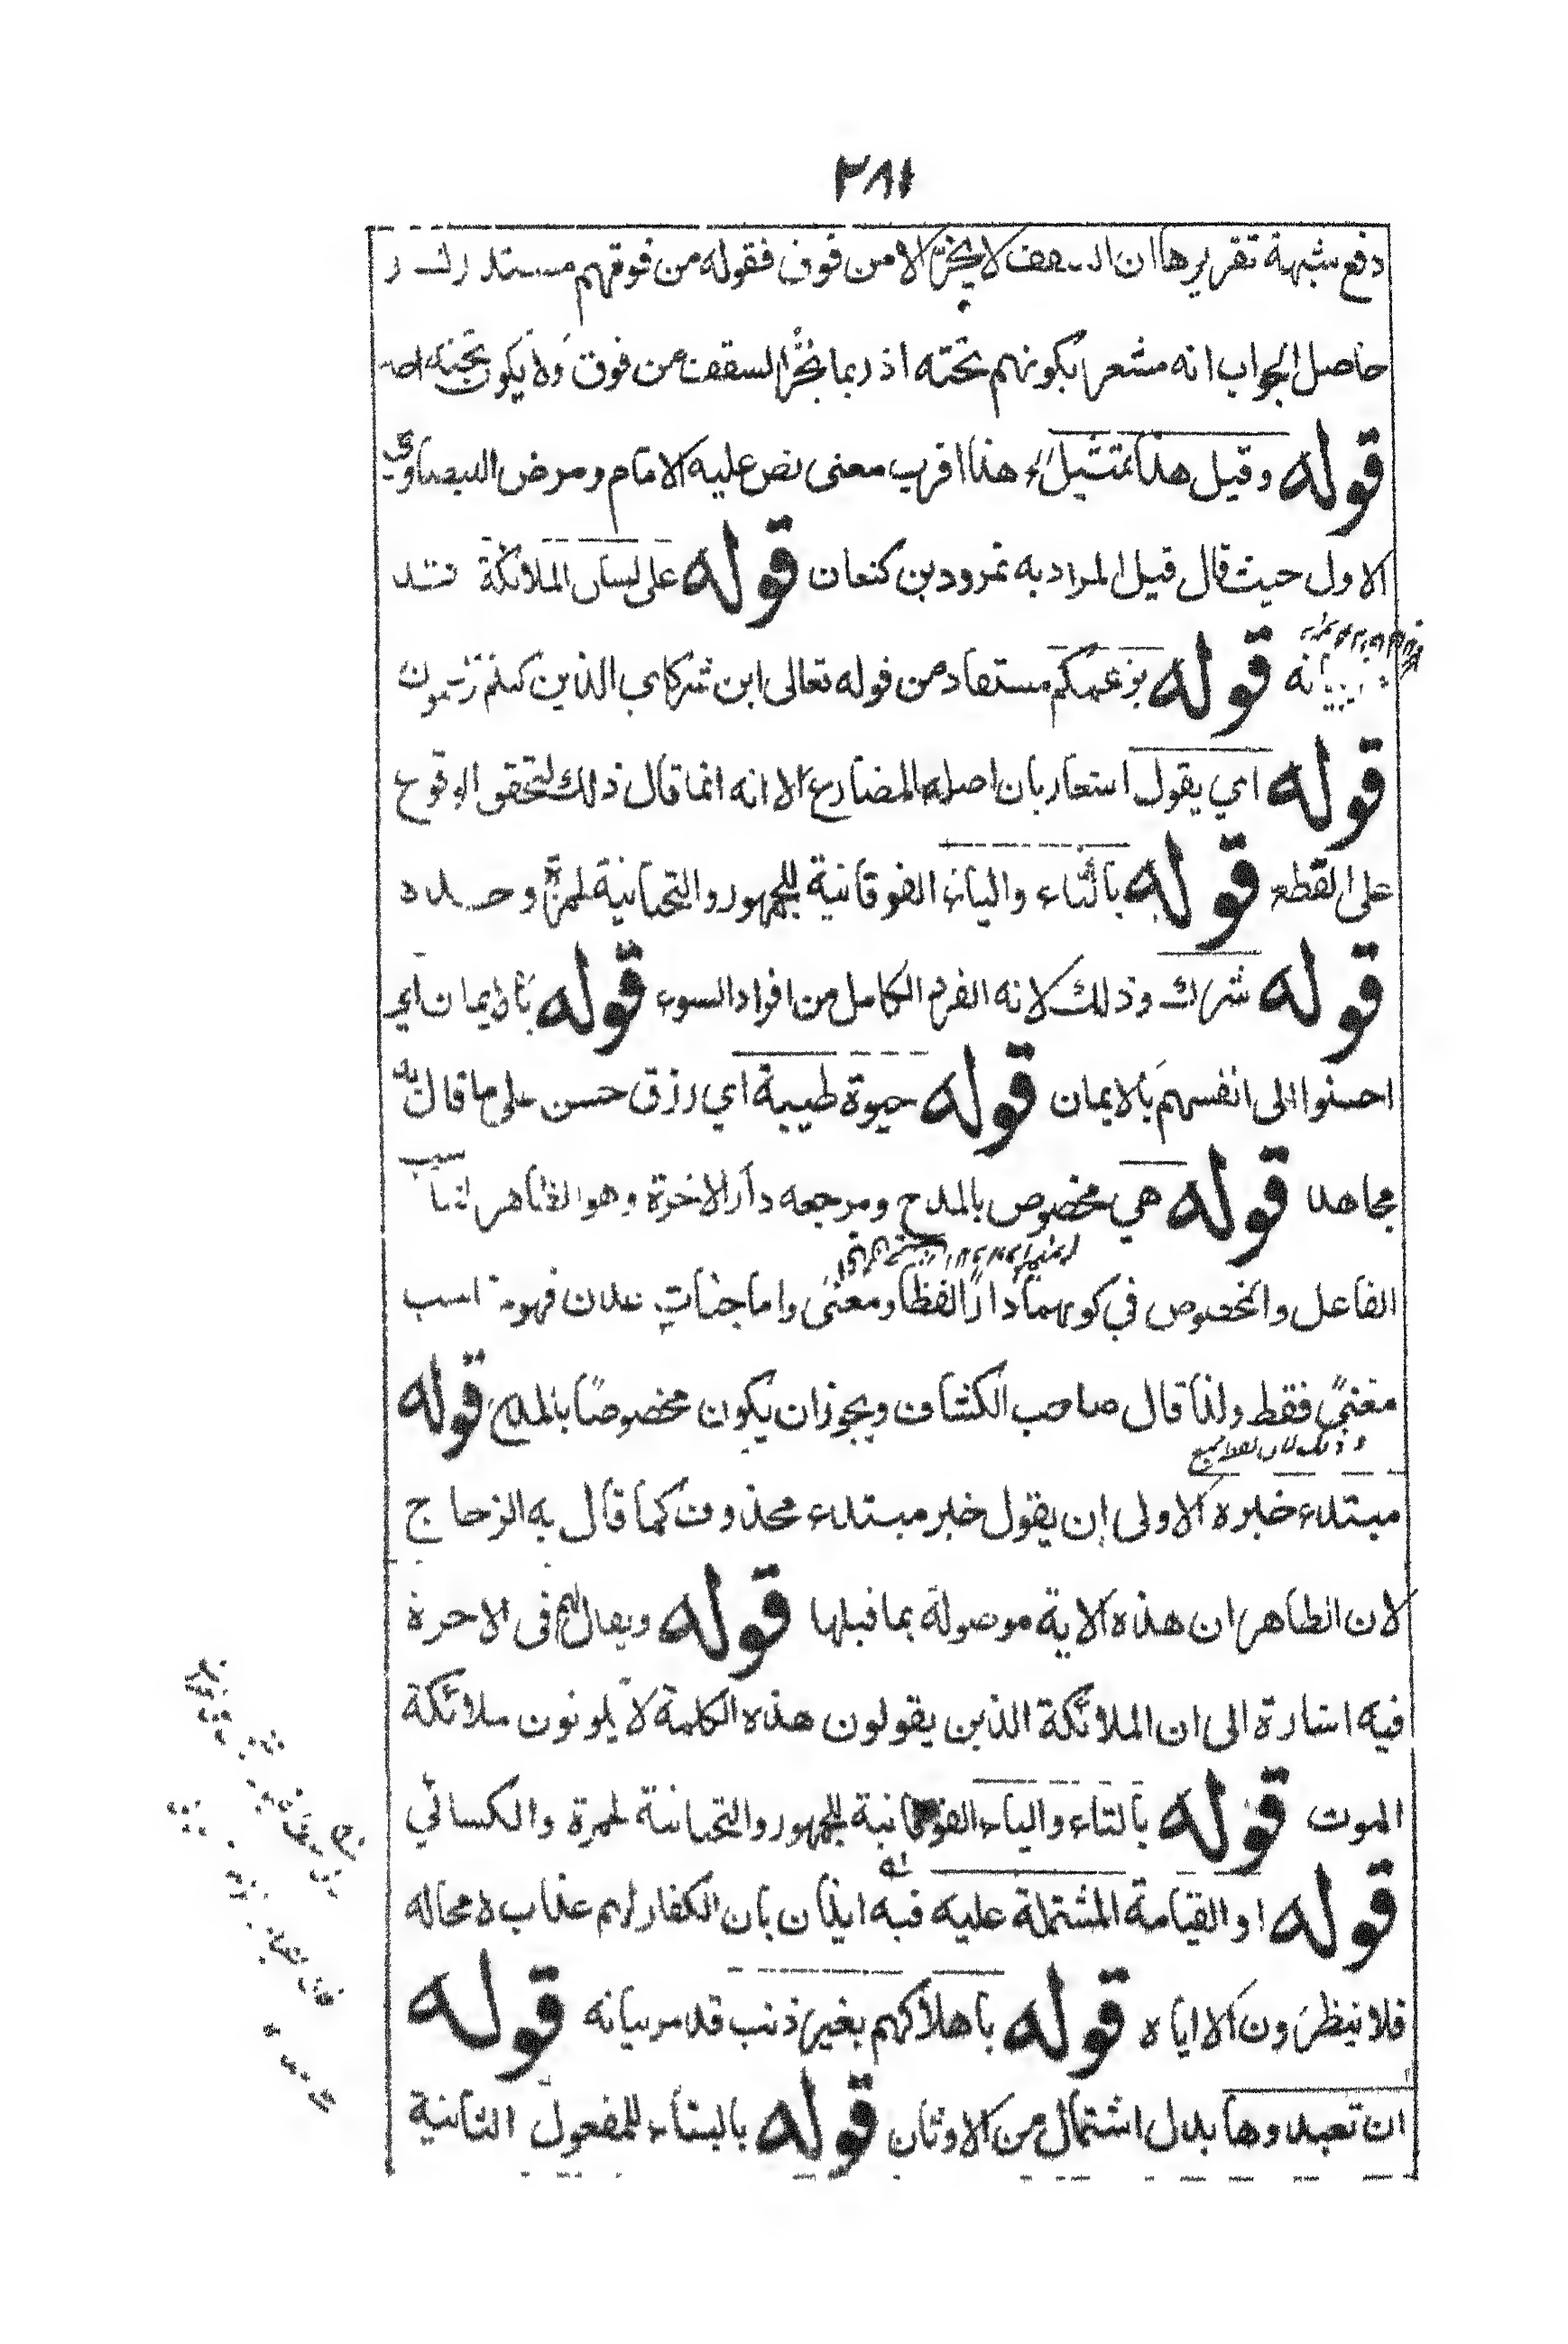 ٢٨١
دفع شبهة تقريرها ان السقف لا يخرّ الا من فوق فقوله من فوقهم مستدرك و
حاصل الجواب انه مشعر بكونهم تحته اذ ربما يخرّ السقف من فوق ولا يكون تحته احد
قوله وقيل هذا تمثيل هذا اقرب معنى نص عليه الامام ومرض البيضاوي
الاول حيث قال قيل المراد به نمرود بن كنعان قوله على لسان الملائكة
انه قوله بزعمكم مستفاد من قوله تعالى اين شركاي الذين كنتم تزعمون
قوله اي يقول اشعار بان اصله المضارع الا انه انما قال ذلك لتحقق الوقوع
على القطع قوله بالتاء والياء الفوقانية للجمهور والتحتانية لحمزة وحده
قوله شرك وذلك لانه الفرد الكامل من افراد السوء قوله بالايمان اي
احسنوا الى انفسهم بالايمان قوله حيوة طيبة اي رزق حسن على ما قال به
مجاهد قوله هي مخصوص بالمدح ومرجعه دار الاخرة وهو الظاهر لتناسب
الفاعل والمخصوص في كونهما دارا لفظا ومعنى واما جنات عدن فهو مناسب
معنى فقط ولذا قال صاحب الكشاف ويجوز ان يكون مخصوصا بالمدح قوله
وذلك لان لفظ جمع
مبتدء خبره الاولى ان يقول خبر مبتدء محذوف كما قال به الزجاج
لان الظاهر ان هذه الاية موصولة بما قبلها قوله ويقال لهم في الاخرة
فيه اشارة الى ان الملائكة الذين يقولون هذه الكلمة لا يكونون ملائكة
الموت قوله بالتاء والياء الفوقانية للجمهور والتحتانية لحمزة والكسائي
قوله او القيامة المشتملة عليه فيه ايذان بان الكفار لهم عذاب لا محالة
فلا ينظرون الا اياه قوله باهلاكهم بغير ذنب قد مر بيانه قوله
ان تعبدوها بدل اشتمال من الاوثان قوله بالبناء للمفعول الثانية